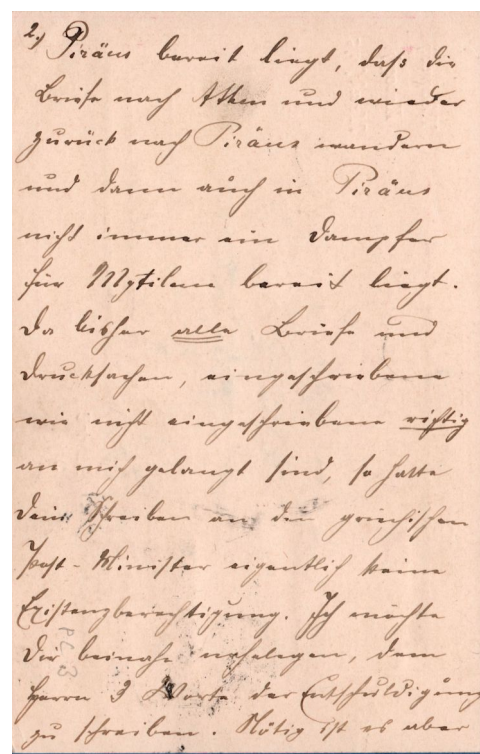 2.) Piräus bereit liegt, daß die
Briefe nach Athen und wieder
zurück nach Piräus wandern
und dann auch in Piräus
nicht immer ein Dampfer
für Mytilene bereit liegt.
Da bisher alle Briefe und
Drucksachen, eingeschriebene
wie nicht eingeschriebene richtig
an mich gelangt sind, so hatte
Dein Schreiben an den griechischen
Post-Minister eigentlich keine
Existenzberechtigung. Ich möchte
Dir beinahe nahelegen, dem
Herrn 3 Worte der Entschuldigung
zu schreiben. Nötig ist es aber